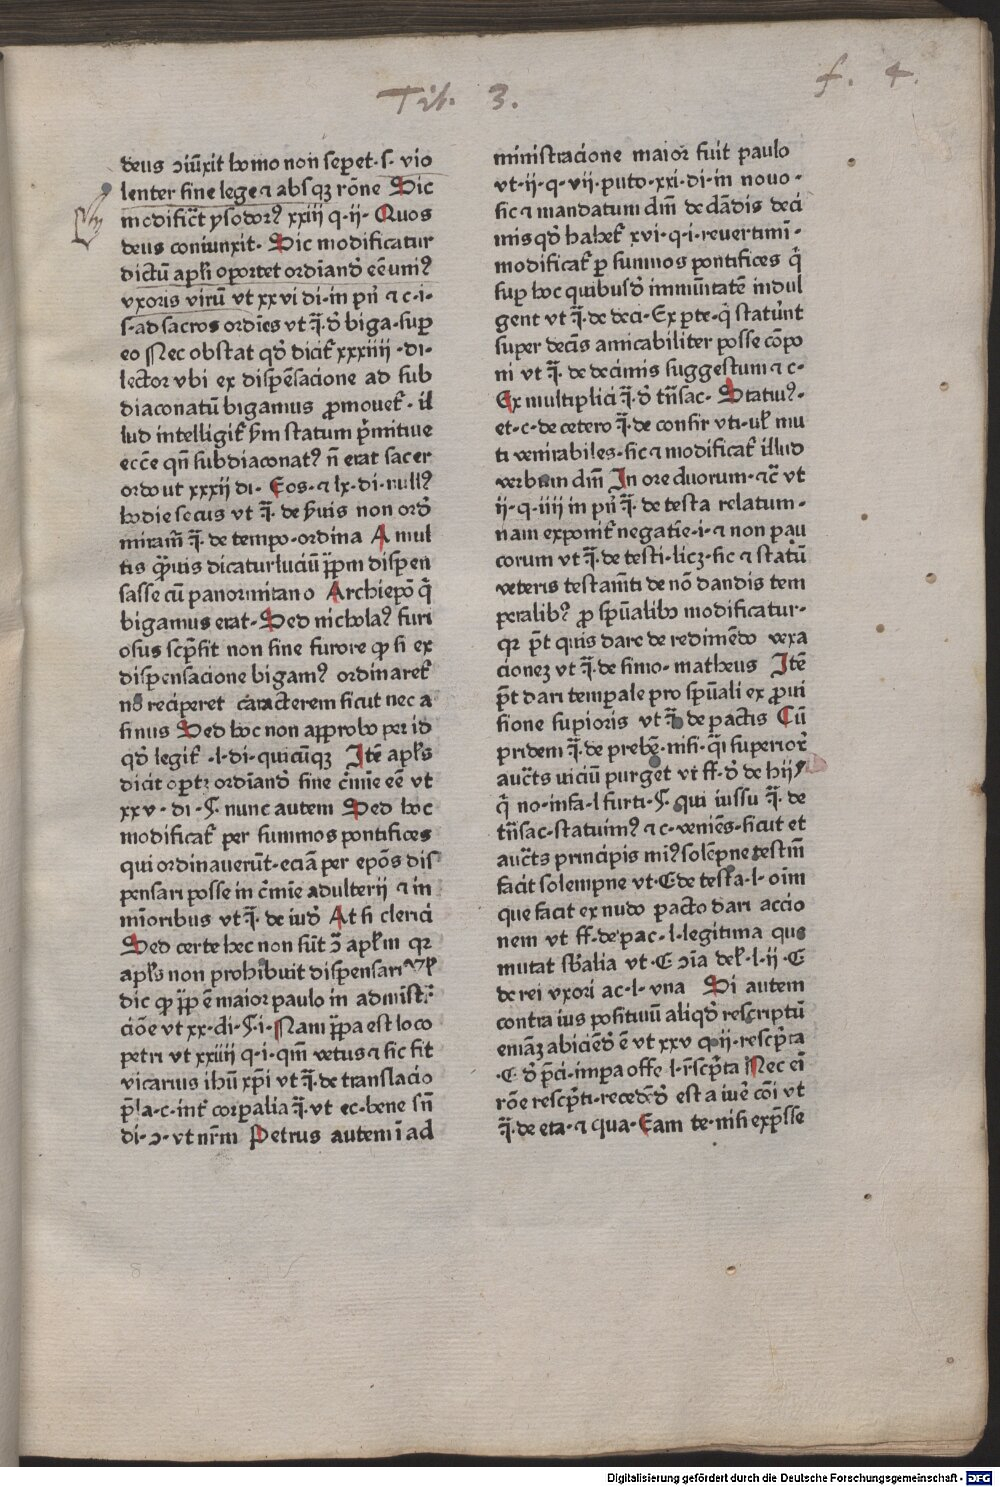 Tit. 3.
f. 4.
deus ɔiūxit homo non sepet·s· vio
lenter sine lege ⁊ absqꝫ rōne Sic
modificat̄ ysodorꝰ xxiij q·ij· Quos
deus coniunxit· Sic modificatur
dictū apl̄i oportet ordīand̄ eē uniꝰ
vxoris virū vt xxvi di·in pn̄ ⁊ c·i·
s·ad sacros ordīes vt ·d̄ biga·sup
eo Nec obstat qd̄ dicit̄ xxxiiij ·di·
lector vbi ex dispēsacione ad sub
diaconatū bigamus ꝓmouet̄· il
lud intelligit̄ scd̄m statum p̄mitiue
eccē qn̄ subdiaconatꝰ n̄ erat sacer
ordo ut xxxij di· Eos·⁊ lx·di·nullꝰ
hodie secus vt de seruis non ord̄
miram̄ de tempo·ordina A mul
tis quis dicatur luciū pp̄m dispen
sasse cū panormitano Archiepō q̄
bigamus erat· Sed nicholaꝰ furi
osus scp̄sit non sine furore ꝙ si ex
dispensacione bigamꝰ ordinaret̄
nō reciperet caracterem sicut nec a
sinus Sed hoc non approbo per id
qd̄ legit̄ ·l·di·quicūqꝫ Itē apl̄s
dicit optꝫ ordīand̄ sine c̄mīe eē vt
xxv·di·§·nunc autem Sed hoc
modificat̄ per summos pontifices
qui ordinauerūt·eciā per epōs dis
pensari posse in c̄mīe adulterij ⁊ in
mīoribus vt de iud̄ At si clerici
Sed certe hec non sūt ɔ̄ apl̄m qr
apl̄s non prohibuit dispensari vl̄
dic ꝙ pp̄ ē maior paulo in admīst̄r
ciōe vt xx·di·§·i·Nam pp̄a est loco
petri vt xxiiij q·i·qm̄ vetus ⁊ sic fit
vicarius ihū xp̄i vt de translacio
p̄la·c·int̄ corpalia vt ec·bene sn̄
di·ɔ·vt nr̄m Petrus autem ī ad
ministracione maior fuit paulo
vt·ij·q·vij·puto·xxi·di·in nouo·
sic ⁊ mandatum dīm de dādis deci
mis qd̄ habet̄ xvi·q·i·reuertimī·
modificat̄ p summos pontifices q̄
sup hoc quibusd̄ immūitatē indul
gent vt de deci·Ex pte·q̄ statūnt
super decīs amicabiliter posse cōpo
ni vt de decimis suggestum ⁊ c·
Ex multiplici d̄ tn̄sac· Statiuꝰ·
et·c·de cetero de confir vti·ul̄ mu
ti venirabiles·sic ⁊ modificat̄ illud
verbum dīm In ore duorum·⁊c̄ vt
ij·q·iiij in pn̄ de testa relatum·
nam exponit̄ negatīe·i·⁊ non pau
corum vt de testi·licꝫ·sic ⁊ statūt
veteris testam̄ti de nō dandis tem
peralibꝰ pro spūalibꝰ modificatur·
qr pt̄ quis dare de redimēdo vexa
cionez vt de simo·matheus Itē
pt̄ dari temp̄ale pro spūali ex ꝓui
sione supioris vt de pactis Cū
pridem de prebē·nisi superior̄
auct̄s uiciū purget vt ff·d̄ de hijꝰ
q̄ no·infa·l·furti·§·qui iussu de
tn̄sac·statuimꝰ ⁊ c·veniēs·sicut et
auct̄s principis miꝰsolēpne testm̄
facit solempne vt·C·de testa·l·oīm
que facit ex nudo pacto dari accio
nem vt ff·de·pac·l·legitima que
mutat sb̄alia vt·C ɔīa del̄·l·ij·C
de rei vxori ac·l·vna Si autem
contra ius positiuū aliqd̄ rescriptū
emāꝫ abiciēd̄ ē vt xxv q·ij·rescp̄ta
·C·d̄ p̄ci·impa offe·l·rescp̄ta Nec eī
rōe rescp̄ti·recedēd̄ est a iuē cōi vt
de eta·⁊ qua·Eam te·nisi exp̄sse
Digitalisierung gefördert durch die Deutsche Forschungsgemeinschaft - DFG